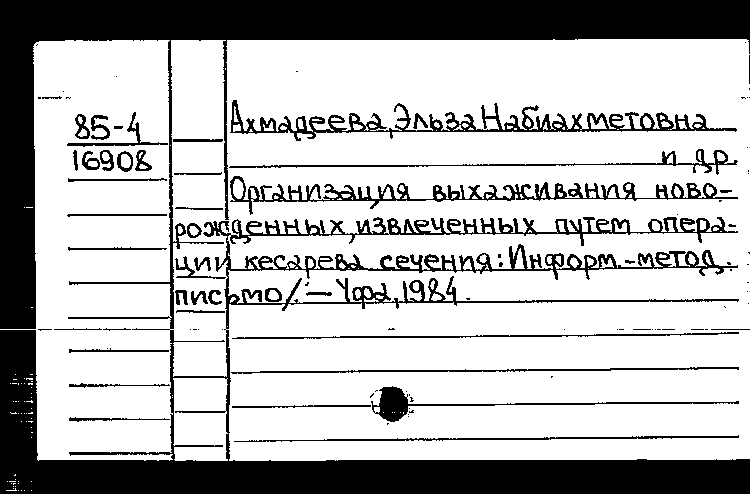 85-4
16908
Ахмадеева, Эльза Набиахметовна
и др.
Организация выхаживания ново-
рожденных, извлеченных путем опера-
ции кесарева сечения: Информ.-метод.
письмо/. — Уфа, 1984.